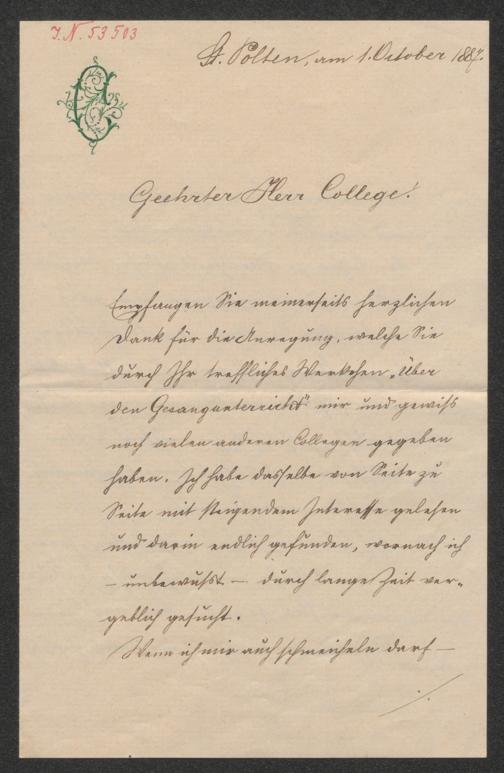 I.N. 53503
St. Pölten, am 1. October 1887.
Geehrter Herr College!
Empfangen Sie meinerseits herzlichen
Dank für die Anregung, welche Sie
durch Ihr treffliches Werkchen „Über
den Gesangunterricht" mir und gewiß
noch vielen anderen Collegen gegeben
haben. Ich habe dasselbe von Seite zu
Seite mit steigendem Interesse gelesen
und darin endlich gefunden, wornach ich
– unbewußt – durch lange Zeit ver-
geblich gesucht.
Wenn ich mir auch schmeicheln darf –
./.